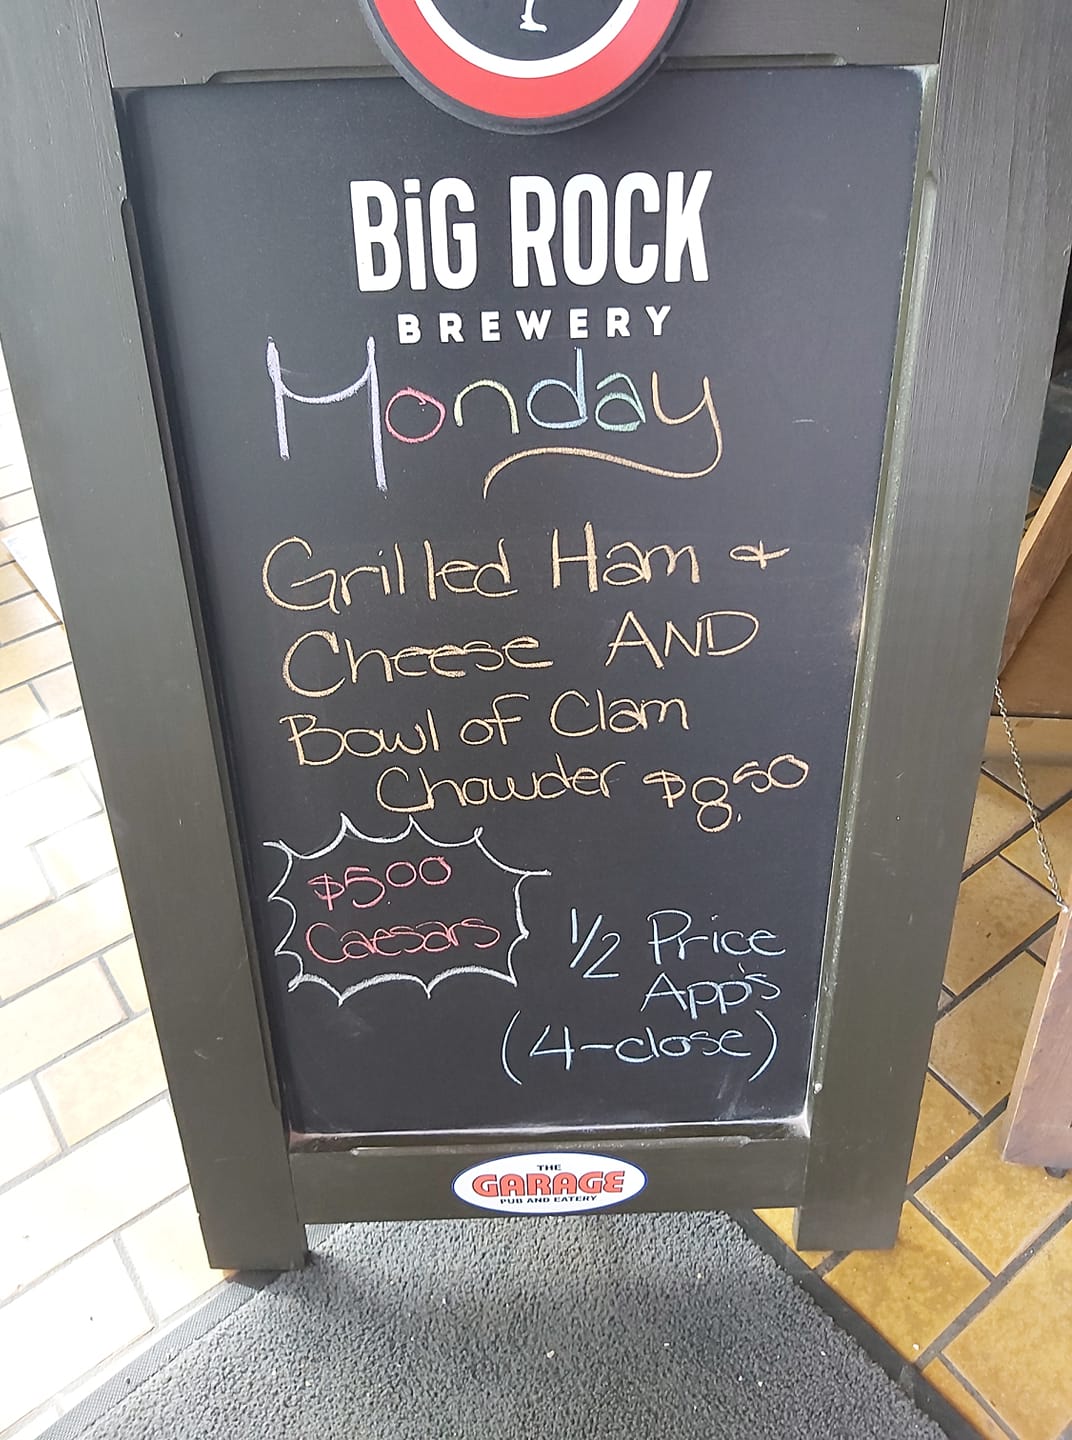 BiG ROCK
BREWERY
Monday
Grilled Ham +
Cheese AND
Bowl of Clam
Chowder $8.50
$5.00
Caesars
1/2 Price
App's
(4-close)
THE
GARAGE
PUB AND EATERY